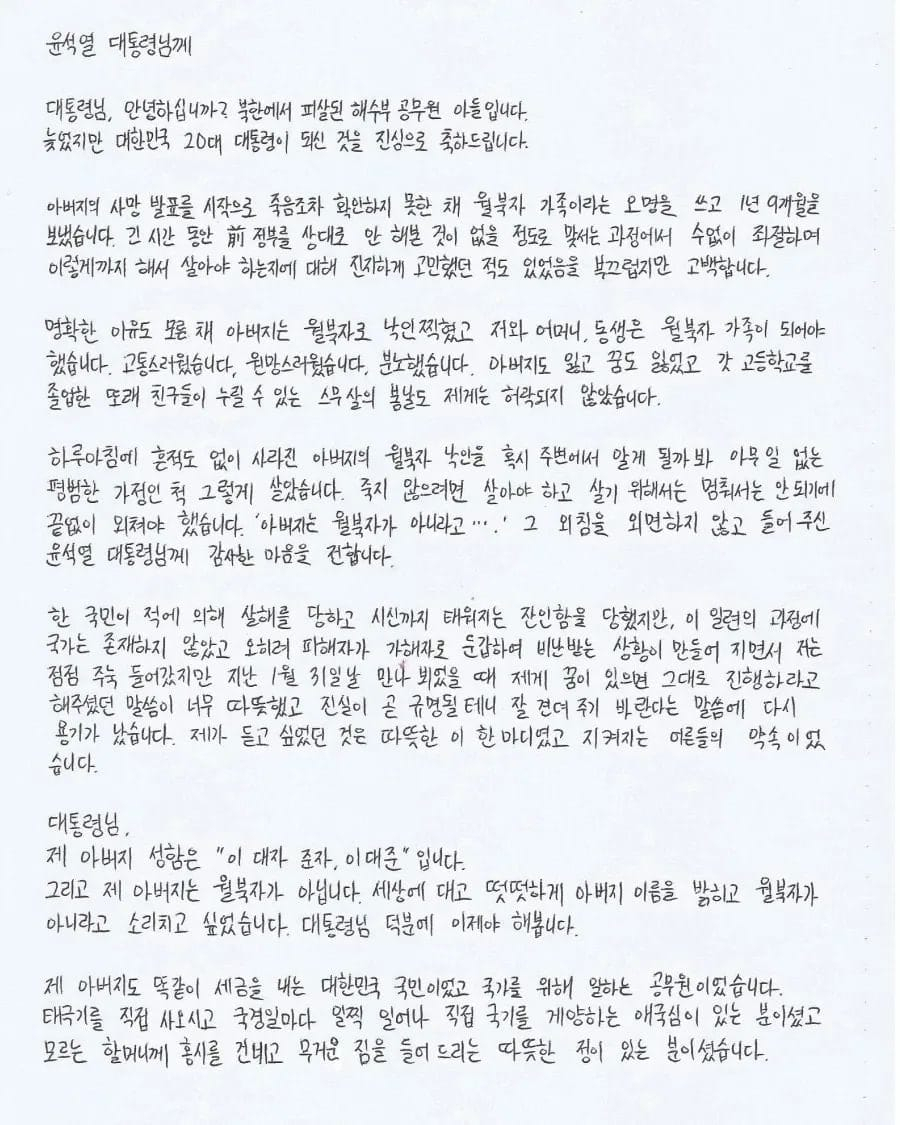 윤석열 대통령님께
대통령님, 안녕하십니까? 북한에서 피살된 해수부 공무원 아들입니다.
늦었지만 대한민국 20대 대통령이 되신 것을 진심으로 축하드립니다.
아버지의 사망 발표를 시작으로 죽음조차 확인하지 못한 채 월북자 가족이라는 오명을 쓰고 1년 9개월을
보냈습니다. 긴 시간 동안 前 정부를 상대로 안 해본 것이 없을 정도로 맞서는 과정에서 수없이 좌절하며
이렇게까지 해서 살아야 하는지에 대해 진지하게 고민했던 적도 있었음을 부끄럽지만 고백합니다.
명확한 이유도 모른 채 아버지는 월북자로 낙인찍혔고 저와 어머니, 동생은 월북자 가족이 되어야
했습니다. 고통스러웠습니다, 원망스러웠습니다, 분노했습니다. 아버지도 잃고 꿈도 잃었고 갓 고등학교를
졸업한 또래 친구들이 누릴 수 있는 스무살의 봄날도 제게는 허락되지 않았습니다.
하루아침에 흔적도 없이 사라진 아버지의 월북자 낙인을 혹시 주변에서 알게 될까봐 아무 일 없는
평범한 가정인 척 그렇게 살았습니다. 죽지 않으려면 살아야 하고 살기 위해서는 멈춰서는 안 되기에
끝없이 외쳐야 했습니다. '아버지는 월북자가 아니라고….' 그 외침을 외면하지 않고 들어 주신
윤석열 대통령님께 감사한 마음을 전합니다.
한 국민이 적에 의해 살해를 당하고 시신까지 태워지는 잔인함을 당했지만, 이 일련의 과정에
국가는 존재하지 않았고 오히려 피해자가 가해자로 둔갑하여 비난받는 상황이 만들어 지면서 저는
점점 주눅 들어갔지만 지난 1월 31일날 만나 뵈었을 때 제게 꿈이 있으면 그대로 진행하라고
해주셨던 말씀이 너무 따뜻했고 진실이 곧 규명될 테니 잘 견뎌 주기 바란다는 말씀에 다시
용기가 났습니다. 제가 듣고 싶었던 것은 따뜻한 이 한 마디였고 지켜지는 어른들의 약속 이었
습니다.
대통령님,
제 아버지 성함은 "이 대자 준자, 이대준" 입니다.
그리고 제 아버지는 월북자가 아닙니다. 세상에 대고 떳떳하게 아버지 이름을 밝히고 월북자가
아니라고 소리치고 싶었습니다. 대통령님 덕분에 이제야 해봅니다.
제 아버지도 똑같이 세금을 내는 대한민국 국민이었고 국가를 위해 일하는 공무원이었습니다.
태극기를 직접 사오시고 국경일마다 일찍 일어나 직접 국기를 게양하는 애국심이 있는 분이셨고
모르는 할머니께 홍시를 건네고 무거운 짐을 들어 드리는 따뜻한 정이 있는 분이셨습니다.